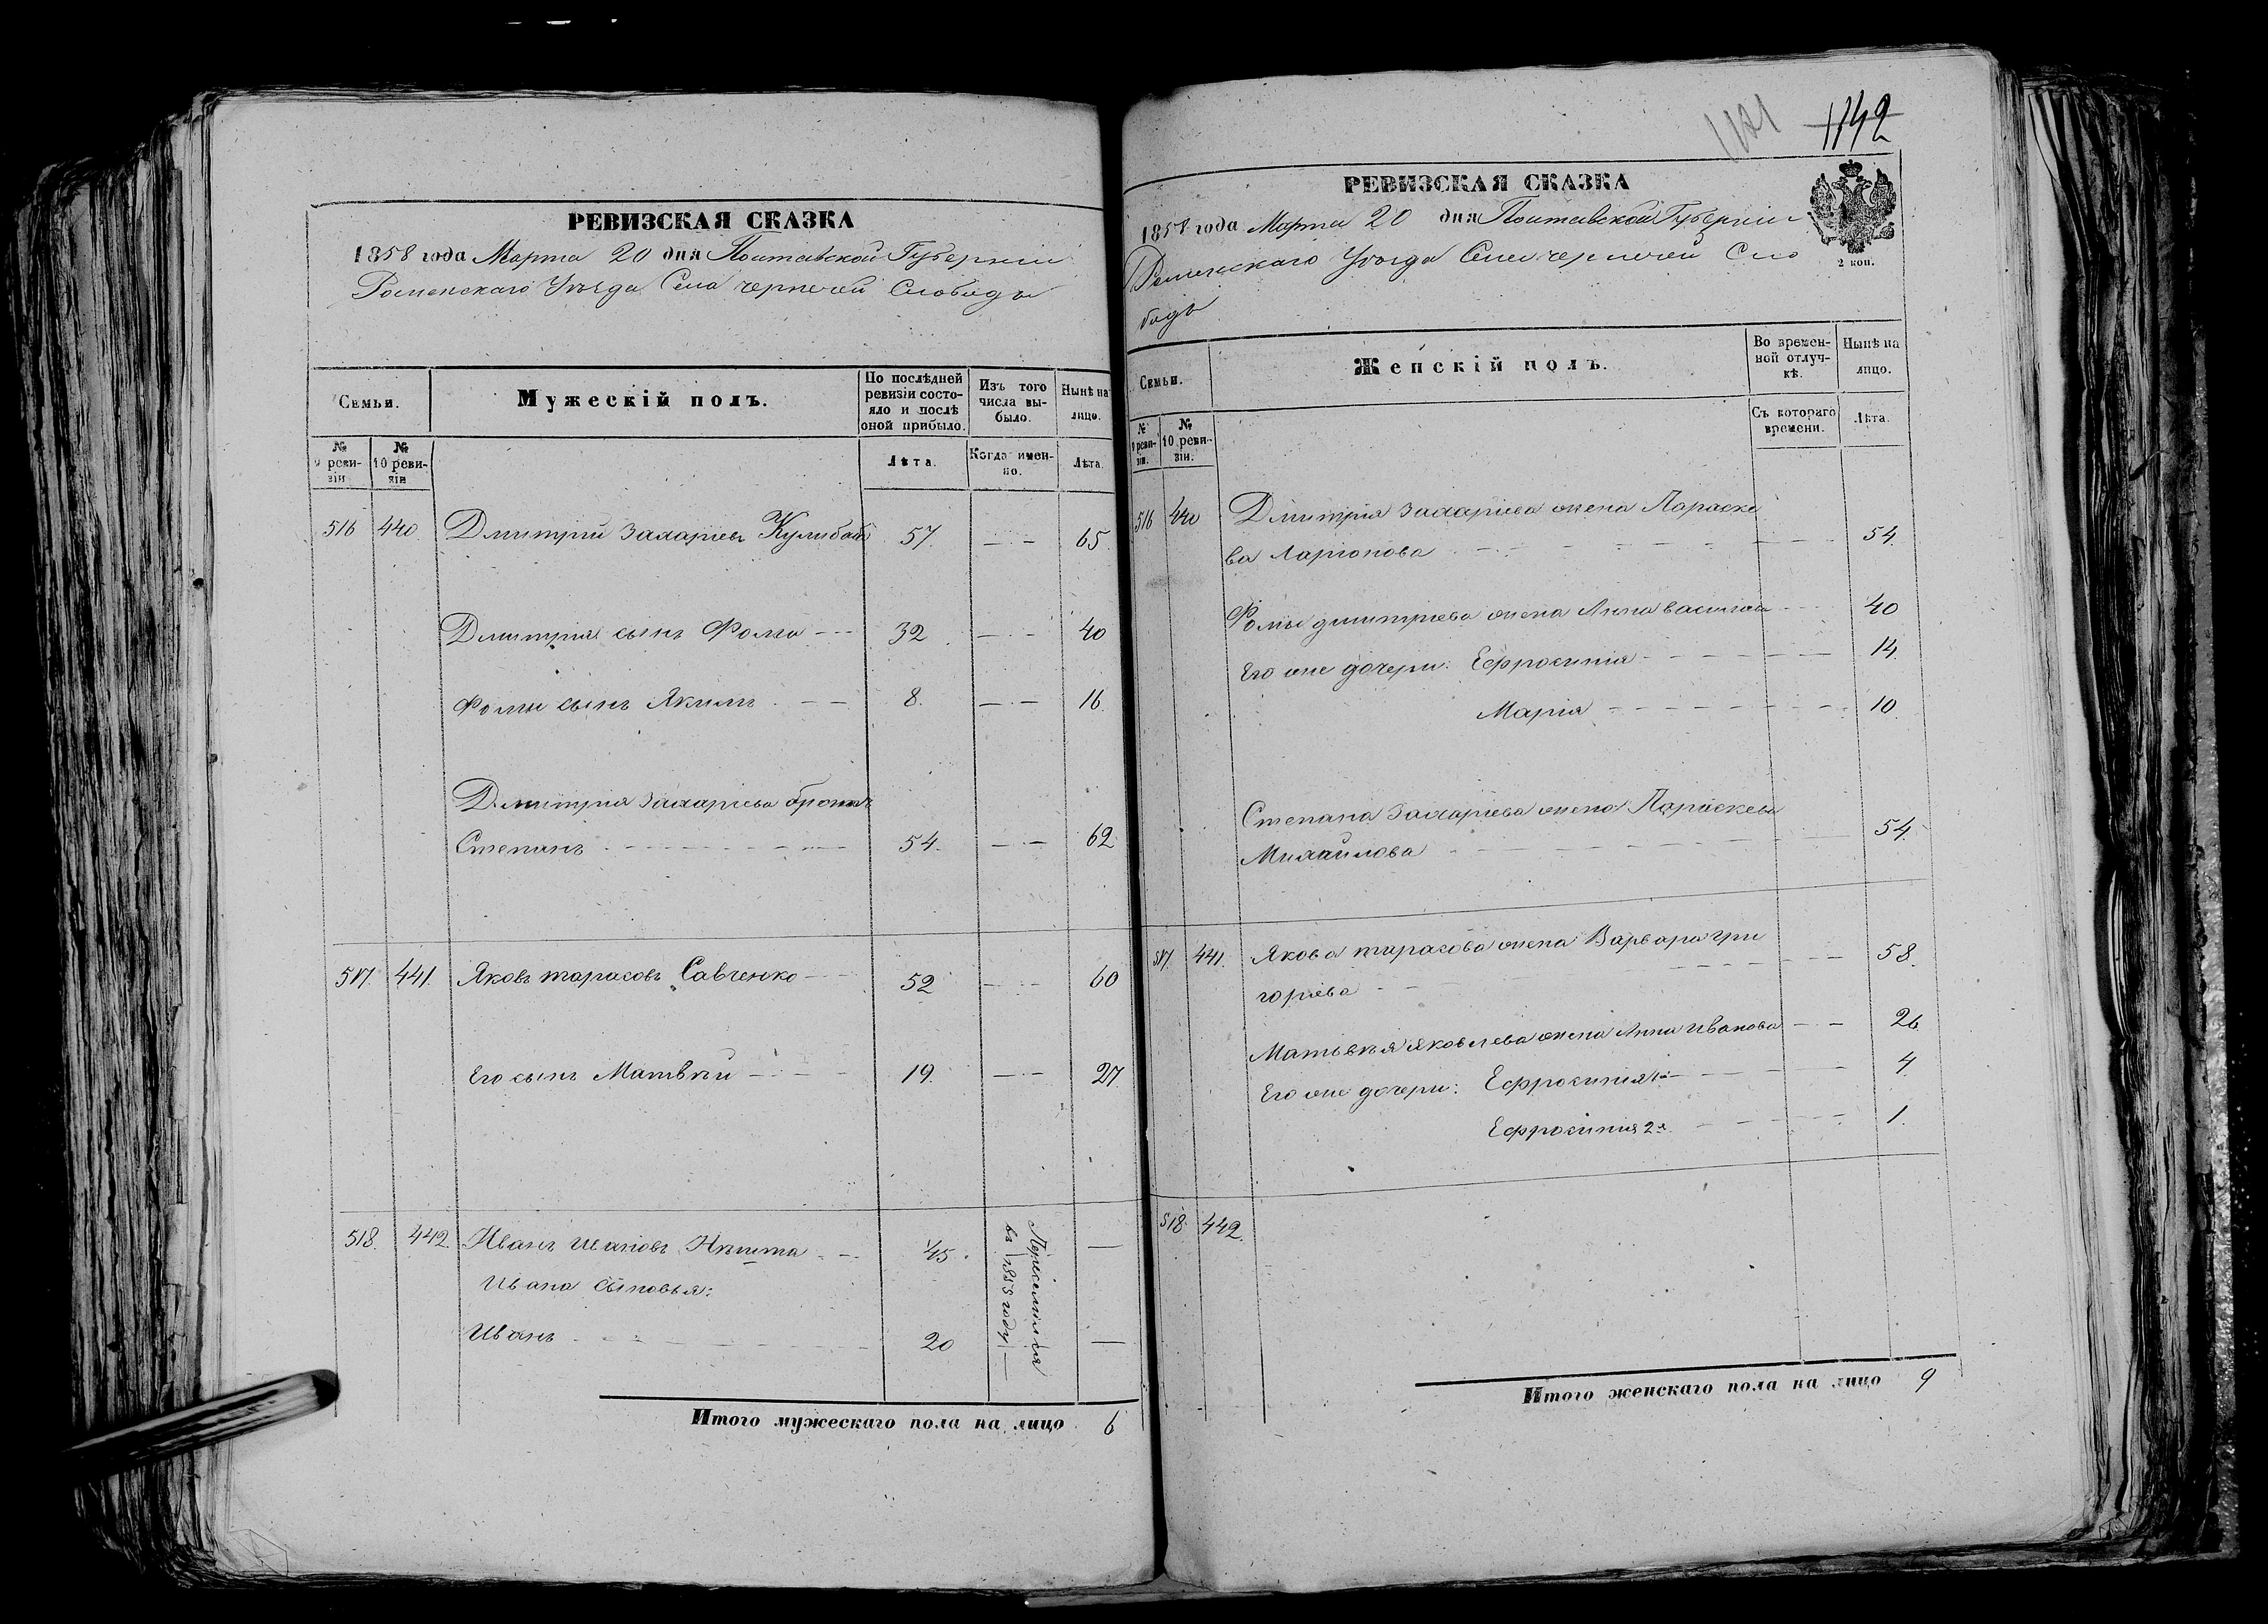 РЕВИЗСКАЯ СКАЗКА
1858 года Марта 20 дня Полтавской Губерніи
Роменскаго Уѣзда Села Чернечей Слободы
Семьи.
Мужескій полъ.
По послѣдней ревизіи состояло и послѣ оной прибыло.
Изъ того числа выбыло.
Нынѣ на лицо.
№ 9 ревизіи
№ 10 ревизіи
Лѣта.
Когда именно.
Лѣта.
516 440. Дмитрій Захаріевъ Кулибаба 57. — — 65.
Дмитрія сынъ Фома — — 32 — — 40
Фомы сынъ Якимъ — — 8. — — 16.
Дмитрія Захаріева братъ
Степанъ 54. — — 62
517. 441. Яковъ тарасовъ Савченко — 52 — — 60
Его сынъ Матвѣй — — 19. — — 27
518. 442. Иванъ Ивановъ 45. —
Ивана сыновья:
Иванъ 20 —
Перечислился
въ 1855 году —
Итого мужескаго пола на лицо 6
1142
РЕВИЗСКАЯ СКАЗКА
1858 года Марта 20 дня Полтавской Губерніи
Роменскаго Уѣзда Села чернечей Сло
бодъ
2 коп.
Семьи.
Женскій полъ.
Во временной отлучкѣ.
Нынѣ на лицо.
№ 9 ревизіи.
№ 10 ревизіи.
Съ котораго времени.
Лѣта.
516 440 Дмитрія Захаріева жена Параске
ва Ларіонова 54.
Фомы дмитріева жена Анна васильева 40
Его же дочери: Ефросинія 14.
Марія 10.
Степана Захаріева жена Параскева
Михайлова 54.
517. 441. Якова тарасова жена Варвара гри
горіева 58.
Матвѣя Яковлева жена Анна Иванова — — 26
Его же дочери: Ефросинія 1я 4
Ефросинія 2я 1.
518. 442.
Итого женскаго пола на лицо 9